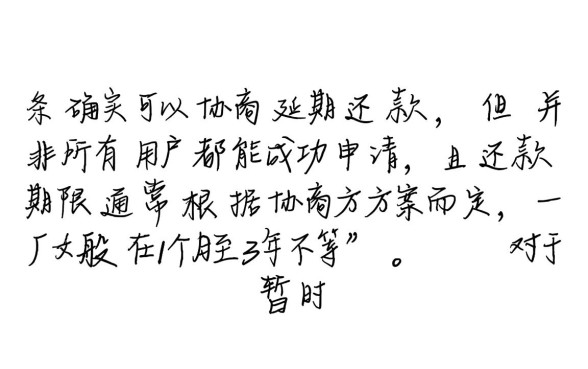 条确实可以协商延期还款，但并
非所有用户都能成功申请，且还款
期限通常根据协商方方案而定，一
般在1个月至3年不等”。 对于
暂时